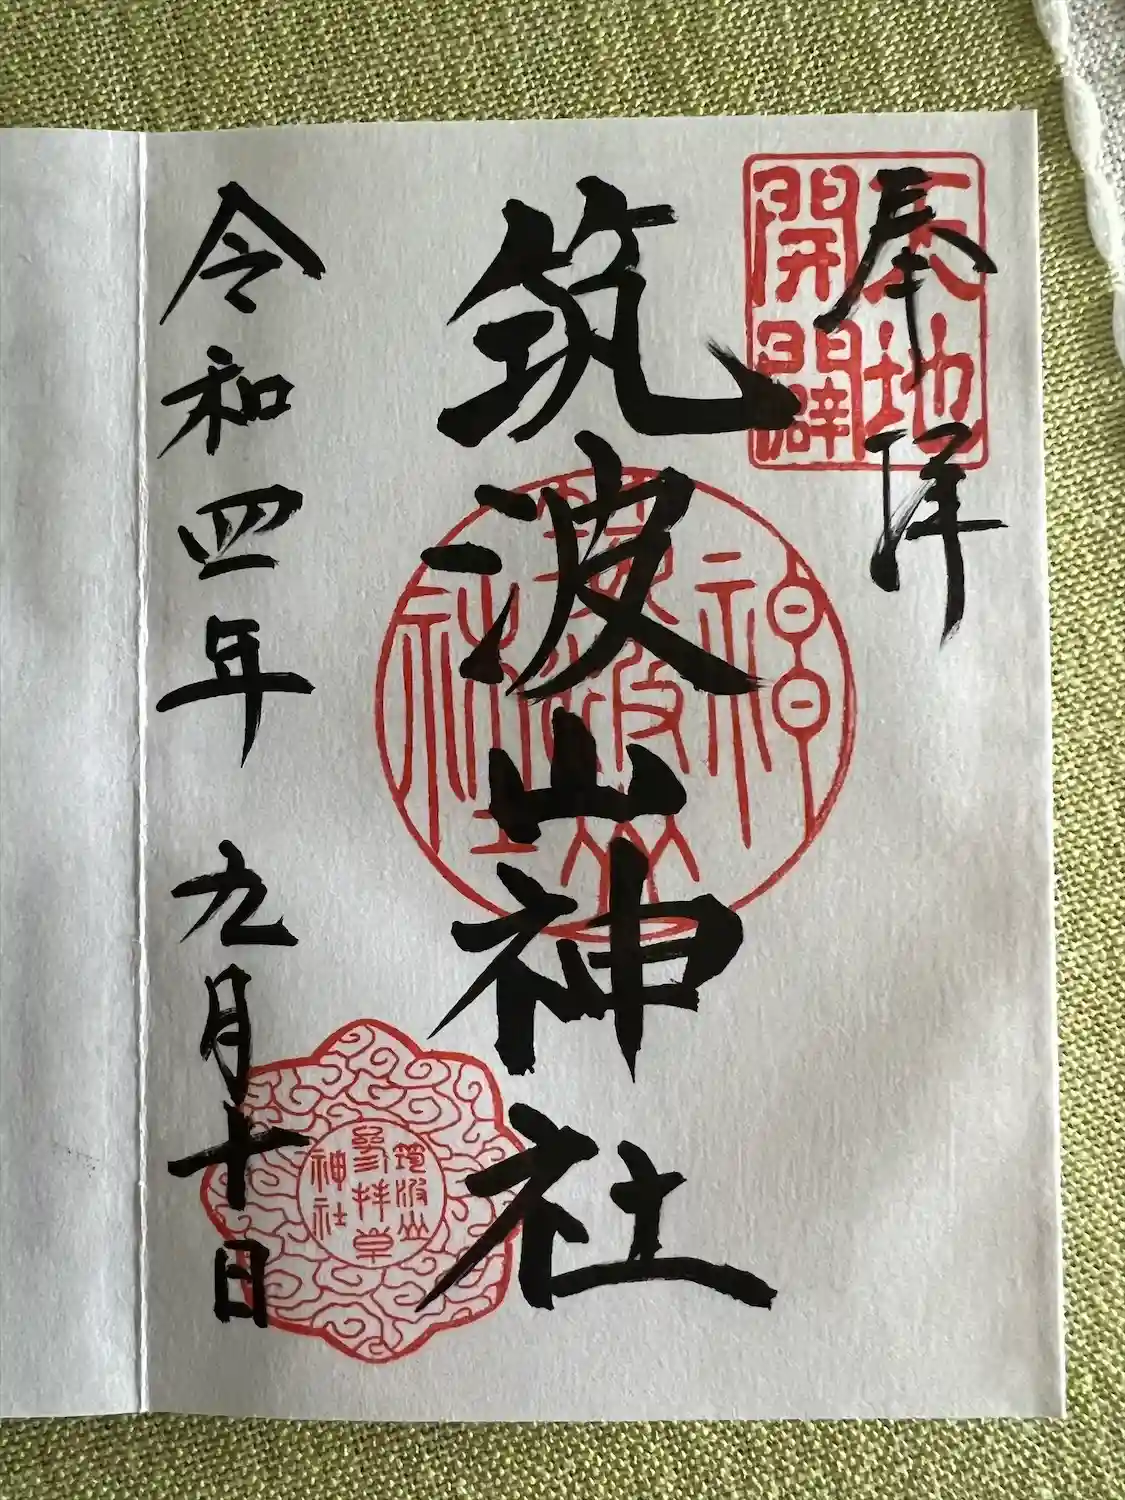 奉拝
天地
開闢
筑波山神社
筑波山
神
社
筑波山
参拝章
神社
令和四年 九月十日